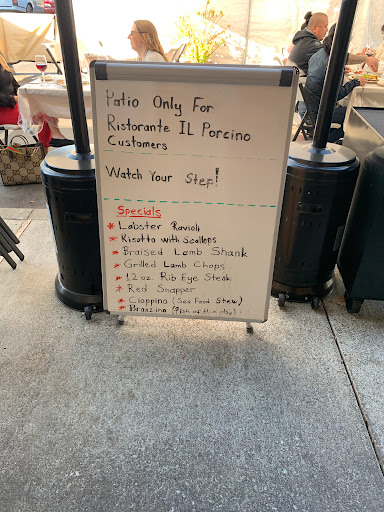 Patio Only For
Ristorante IL Porcino
Customers
Watch Your Step!
Specials
* Labster Ravioli
* Risotto with Scallops
* Braised Lamb Shank
* Grilled Lamb Chops
* 12 oz Rib Eye Steak
* Red Snapper
* Cioppino (Sea Food Stew)
* Branzino (Fish of the day)